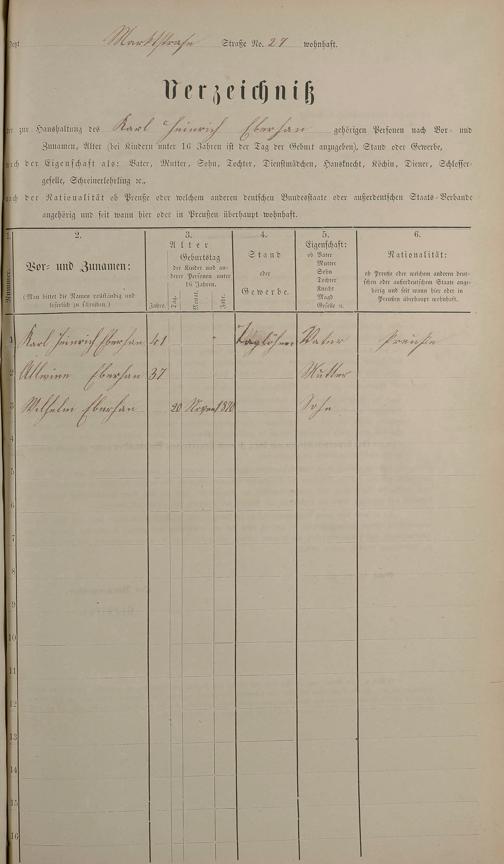 Jetzt Marktstraße Straße No. 27 wohnhaft.
Verzeichniß
der zur Haushaltung des Karl Heinrich Eberhan gehörigen Personen nach Vor- und
Zunamen, Alter (bei Kindern unter 16 Jahren ist der Tag der Geburt anzugeben), Stand oder Gewerbe,
nach der Eigenschaft als: Vater, Mutter, Sohn, Tochter, Dienstmädchen, Hausknecht, Köchin, Diener, Schlosser-
geselle, Schreinerlehrling ꝛc.,
nach der Nationalität ob Preuße oder welchem anderen deutschen Bundesstaate oder außerdeutschen Staats-Verbande
angehörig und seit wann hier oder in Preußen überhaupt wohnhaft.
1. 2. 3. 4. 5. 6.
Nummer.
Vor- und Zunamen:
(Man bittet die Namen vollständig und
leserlich zu schreiben.)
Alter
Jahre.
Geburtstag
der Kinder und an-
derer Personen unter
16 Jahren.
Tag. Monat. Jahr.
Stand
oder
Gewerbe.
Eigenschaft:
ob Vater
Mutter
Sohn
Tochter
Knecht
Magd
Geselle ꝛc.
Nationalität:
ob Preuße oder welchem anderen deut-
schen oder außerdeutschen Staate ange-
hörig und seit wann hier oder in
Preußen überhaupt wohnhaft.
1 Karl Heinrich Eberhan 41 Taglöhner Vater Preuße
2 Allwine Eberhan 37 Mutter
3 Wilhelm Eberhan 20 Novem 1870 Sohn
4
5
6
7
8
9
10
11
12
13
14
15
16